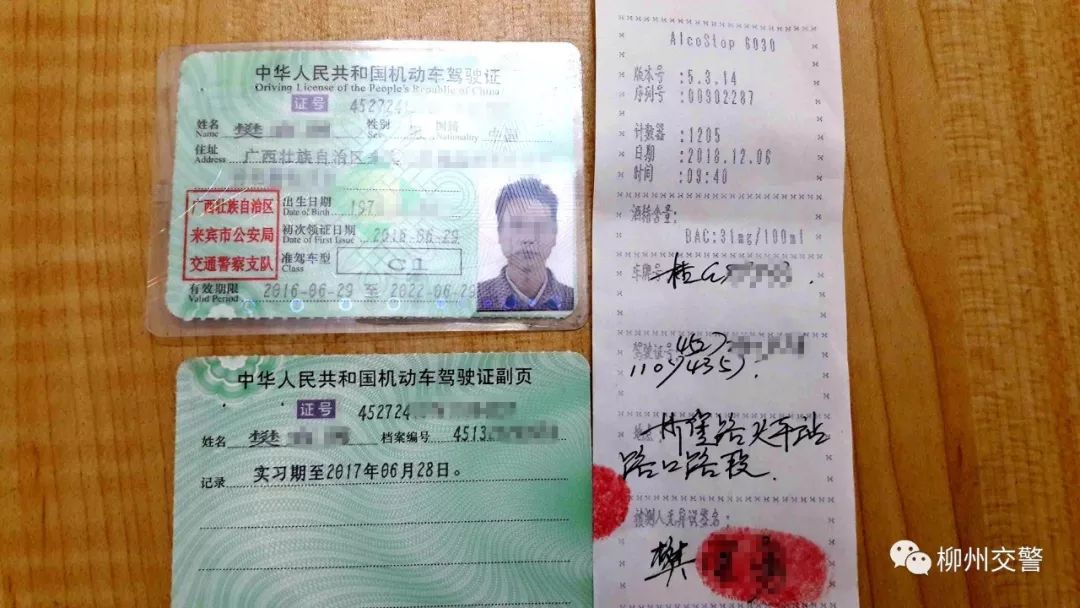 中华人民共和国机动车驾驶证
Driving License of the People's Republic of China
证号 4527241
姓名 樊 性别 国籍
Name Sex Nationality
住址 广西壮族自治区
Address
广西壮族自治区
来宾市公安局
交通警察支队
出生日期 197
Date of Birth
初次领证日期 2016-06-29
Date of First Issue
准驾车型 C1
Class
有效期限 2016-06-29 至 2022-06-29
Valid Period
中华人民共和国机动车驾驶证副页
证号 452724
姓名 樊 档案编号 4513
记录 实习期至2017年06月28日。
AlcoStop 6030
版本号 :5.3.14
序列号 :00902287
计数器 :1205
日期 :2018.12.06
时间 :09:40
酒精含量:
BAC:31mg/100ml
车牌号 桂G
驾驶证号 4527
路火车站
路口路段.
被测人无异议签名:
樊
柳州交警